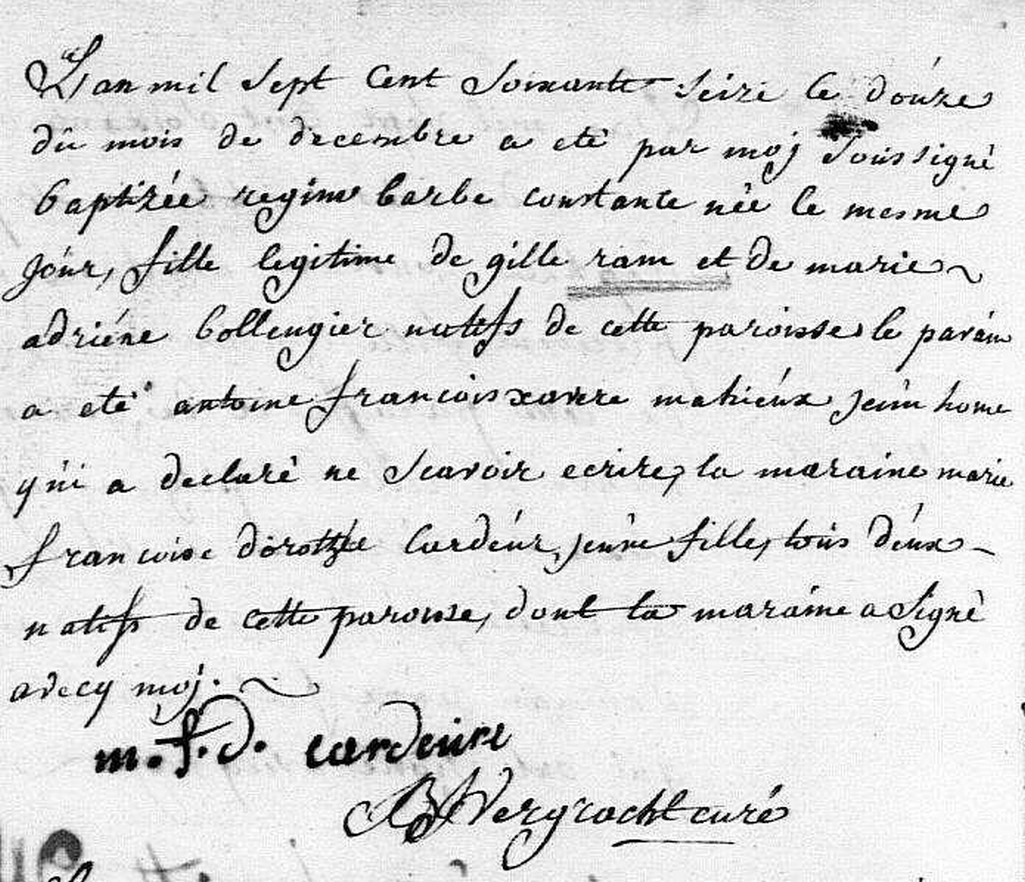 L'an mil sept cent soixante seize le douze
du mois de decembre a eté par moj soussigné
baptizée regine barbe constante née le mesme
jour, fille legitime de gille ram et de marie
adriéne bollengier natifs de cette paroisse, le parain
a eté antoine francois xavere mahieux jeun home
qui a declaré ne scavoir ecrire, la maraine marie
francoise dorothée Cardeur, jeune fille, tous deux
natifs de cette paroisse, dont la maraine a Signé
avecq moj.
m. f. d. cardeure
Vergracht curé